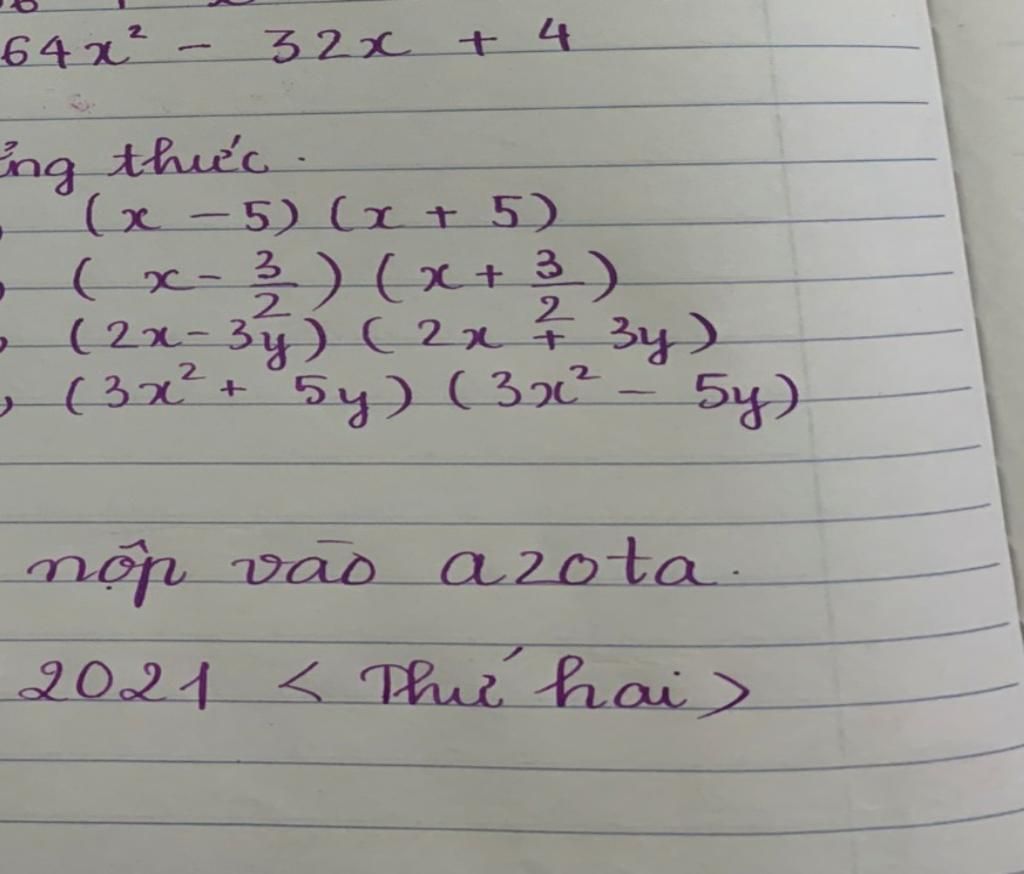 64x² - 32x + 4
ẳng thức.
(x - 5) (x + 5)
( x - 3/2 ) ( x + 3/2 )
(2x - 3y) ( 2x + 3y )
, (3x² + 5y) (3x² - 5y)
nộp vào azota.
2021 < Thứ hai >